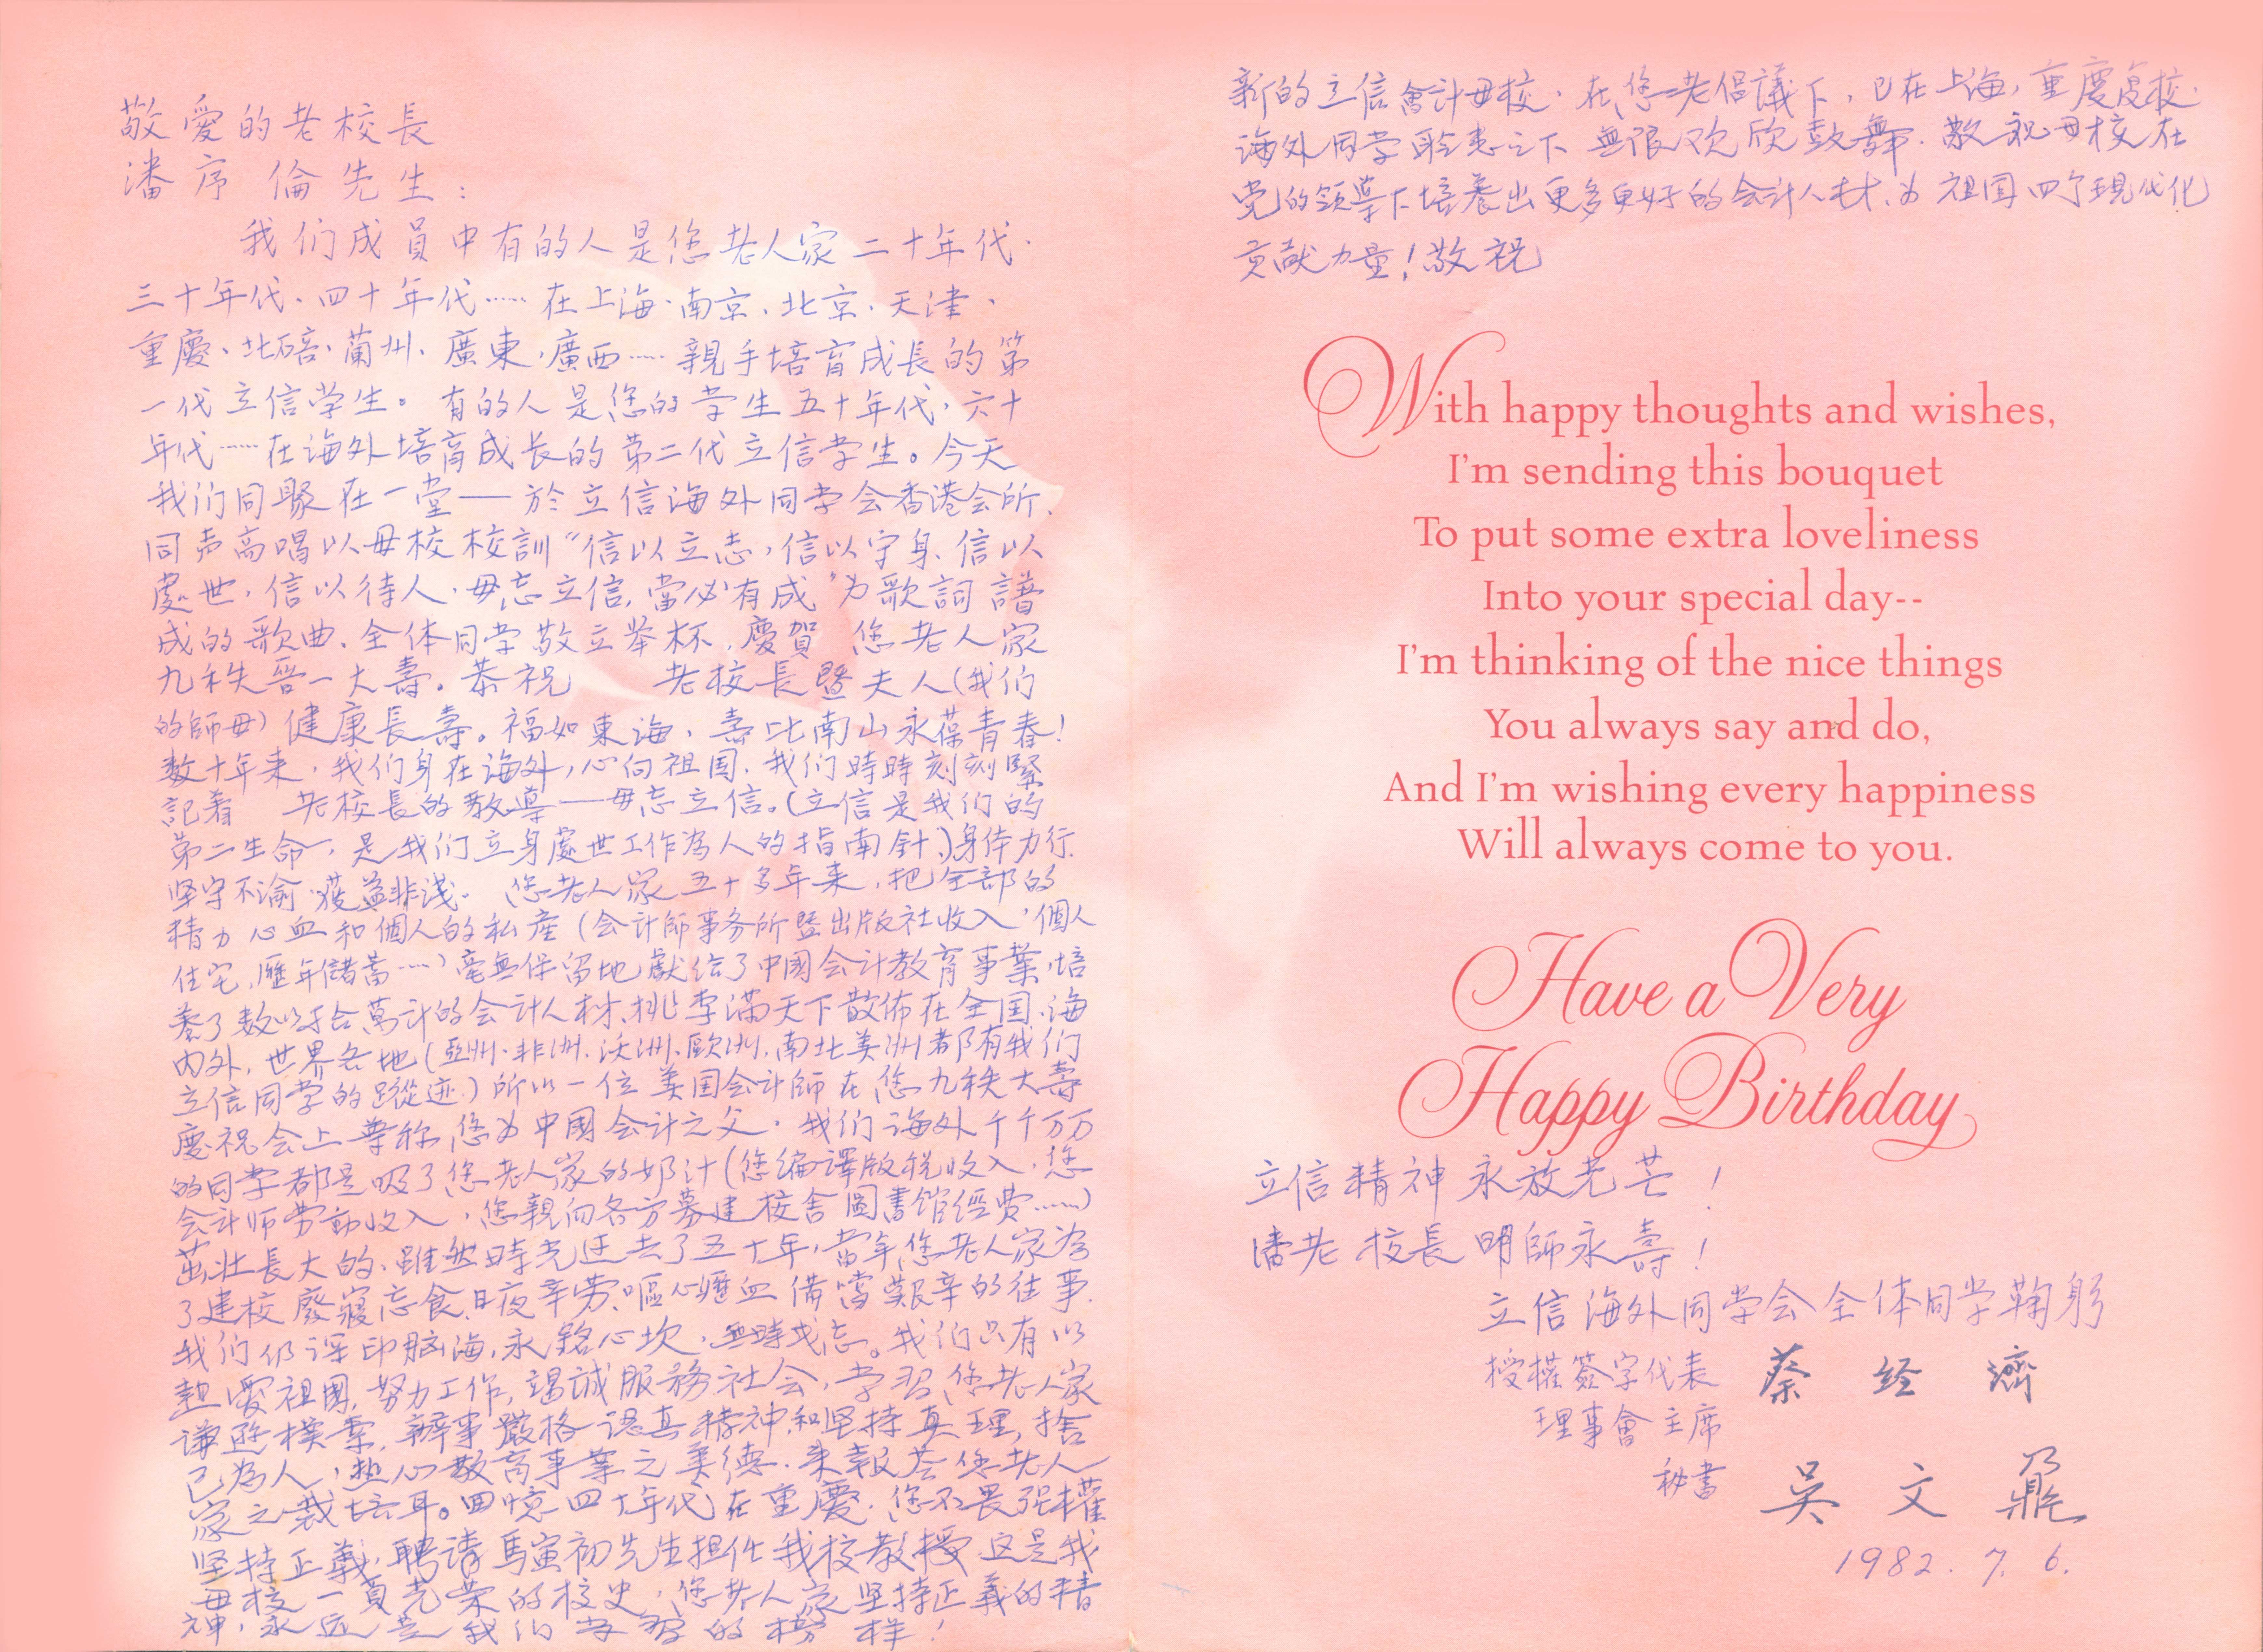 敬愛的老校長
潘序倫先生：
我们成員中有的人是您老人家二十年代.
三十年代、四十年代……在上海.南京、北京、天津、
重慶、北碚、蘭州、廣東、廣西……親手培育成長的第
一代立信学生。有的人是您的学生五十年代，六十
年代……在海外培育成长的第二代立信学生。今天
我们同聚在一堂——於立信海外同学会香港会所、
同声高唱以母校校訓“信以立志，信以守身、信以
處世，信以待人，毋忘立信，當必有成”为歌詞譜
成的歌曲、全体同学敬立举杯，慶賀 您老人家
九秩晋一大壽。恭祝 老校長暨夫人(我们
的師母)健康長壽。福如東海，壽比南山永葆青春！
数十年来，我们身在海外，心向祖国，我们時時刻刻緊
記着 老校長的教導——毋忘立信。(立信是我们的
第二生命，是我们立身處世工作為人的指南針、)身体力行.
坚守不渝.獲益非浅. 您老人家五十多年来，把全部的
精力心血和個人的私産(会计師事务所暨出版社收入，個人
住宅，歷年儲蓄……)毫無保留地獻给了中國会计教育事業，培
養了数以千百萬計的会计人材、桃李滿天下散佈在全国、海
内外，世界各地(亞洲.非洲.沃洲、歐洲，南北美洲都有我们
立信同学的蹤迹.)所以一位美国会计師在您九秩大壽
慶祝会上尊称您为中國会计之父. 我们海外千千万万
的同学都是吸了您老人家的奶汁(您編譯版税收入，您
会计师劳動收入，您親向各方募建校舍圖書馆經费……)
茁壯長大的、雖然時光过去了五十年，當年您老人家為
了建校廢寢忘食、日夜辛劳、嘔心瀝血備嘗艱辛的往事.
我们仍深印脑海，永銘心坎，無時或忘。我们只有以
熱愛祖國，努力工作，竭誠服務社会，学習您老人家
謙遜樸素，辦事嚴格认真精神和坚持真理，捨
己為人，热心教育事業之美德.来報答您老人
家之栽培耳。回憶四十年代在重慶.您不畏强權
坚持正義，聘请馬寅初先生担任我校教授 这是我
母校一頁光荣的校史，您老人家坚持正義的精
神，永远是我们学習的榜样！
新的立信會计母校.在您老倡議下，已在上海，重慶复校.
海外同学聆悉之下無限欢欣鼓舞. 敬祝母校在
党的領导下培養出更多更好的会计人材、为祖国四个现代化
贡献力量！敬祝
With happy thoughts and wishes,
I'm sending this bouquet
To put some extra loveliness
Into your special day--
I'm thinking of the nice things
You always say and do,
And I'm wishing every happiness
Will always come to you.
Have a Very
Happy Birthday
立信精神永放光芒！
潘老校長明師永壽！
立信海外同学会全体同学鞠躬
授權簽字代表 蔡经濟
理事會主席
秘書 吳文鼐
1982. 7. 6.